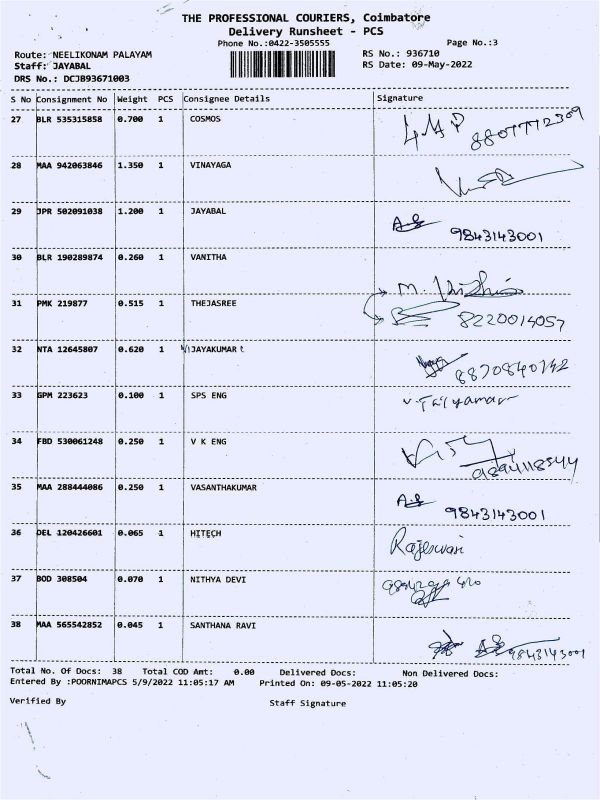 THE PROFESSIONAL COURIERS, Coimbatore
Delivery Runsheet - PCS
Phone No.:0422-3505555 Page No.:3
Route: NEELIKONAM PALAYAM RS No.: 936710
Staff: JAYABAL RS Date: 09-May-2022
DRS No.: DCJB93671003
S No Consignment No Weight PCS Consignee Details Signature
27 BLR 535315858 0.700 1 COSMOS 8807772309
28 MAA 942063846 1.350 1 VINAYAGA
29 JPR 502091038 1.200 1 JAYABAL
9843143001
30 BLR 190289874 0.260 1 VANITHA
31 PMK 219877 0.515 1 THEJASREE
8220014057
32 NTA 12645807 0.620 1 JAYAKUMAR
33 GPM 223623 0.100 1 SPS ENG
34 FBD 530061248 0.250 1 V K ENG
35 MAA 288444086 0.250 1 VASANTHAKUMAR
9843143001
36 DEL 120426601 0.065 1 HITECH Rajeswari
37 BOD 308504 0.070 1 NITHYA DEVI
38 MAA 565542852 0.045 1 SANTHANA RAVI
9843143001
Total No. Of Docs: 38 Total COD Amt: 0.00 Delivered Docs: Non Delivered Docs:
Entered By :POORNIMAPCS 5/9/2022 11:05:17 AM Printed On: 09-05-2022 11:05:20
Verified By Staff Signature